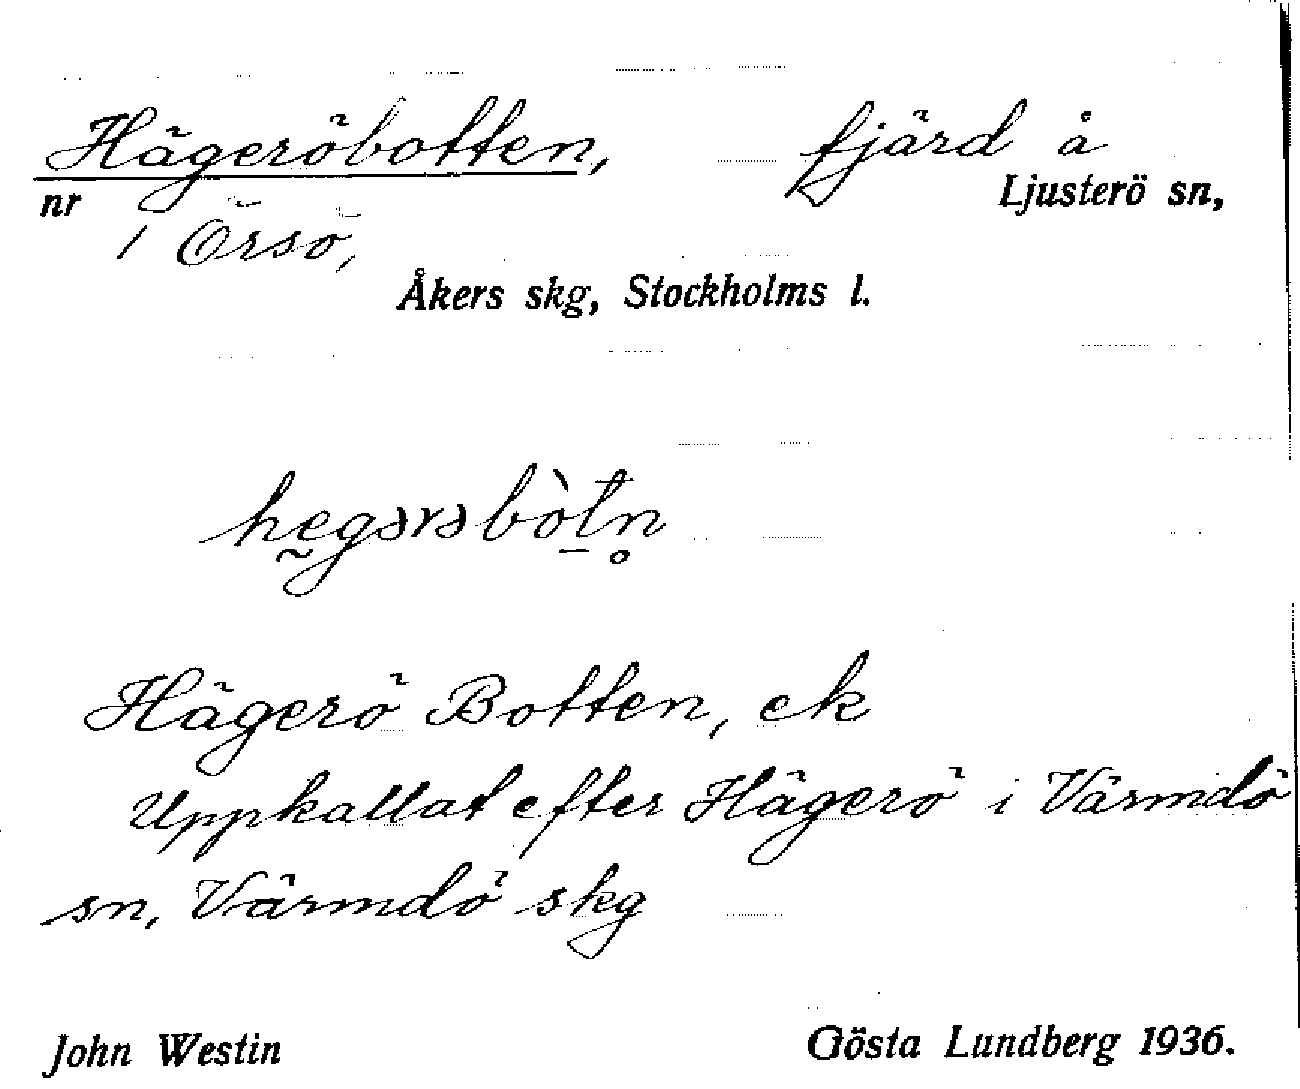 Hägeröbotten, fjärd å
nr Ljusterö sn,
i Örsö,
Åkers skg, Stockholms l.
hḛgərəbòt̠n̥
Hägerö Botten, ek
Uppkallat efter Hägerö i Värmdö
sn, Värmdö skg
John Westin Gösta Lundberg 1936.